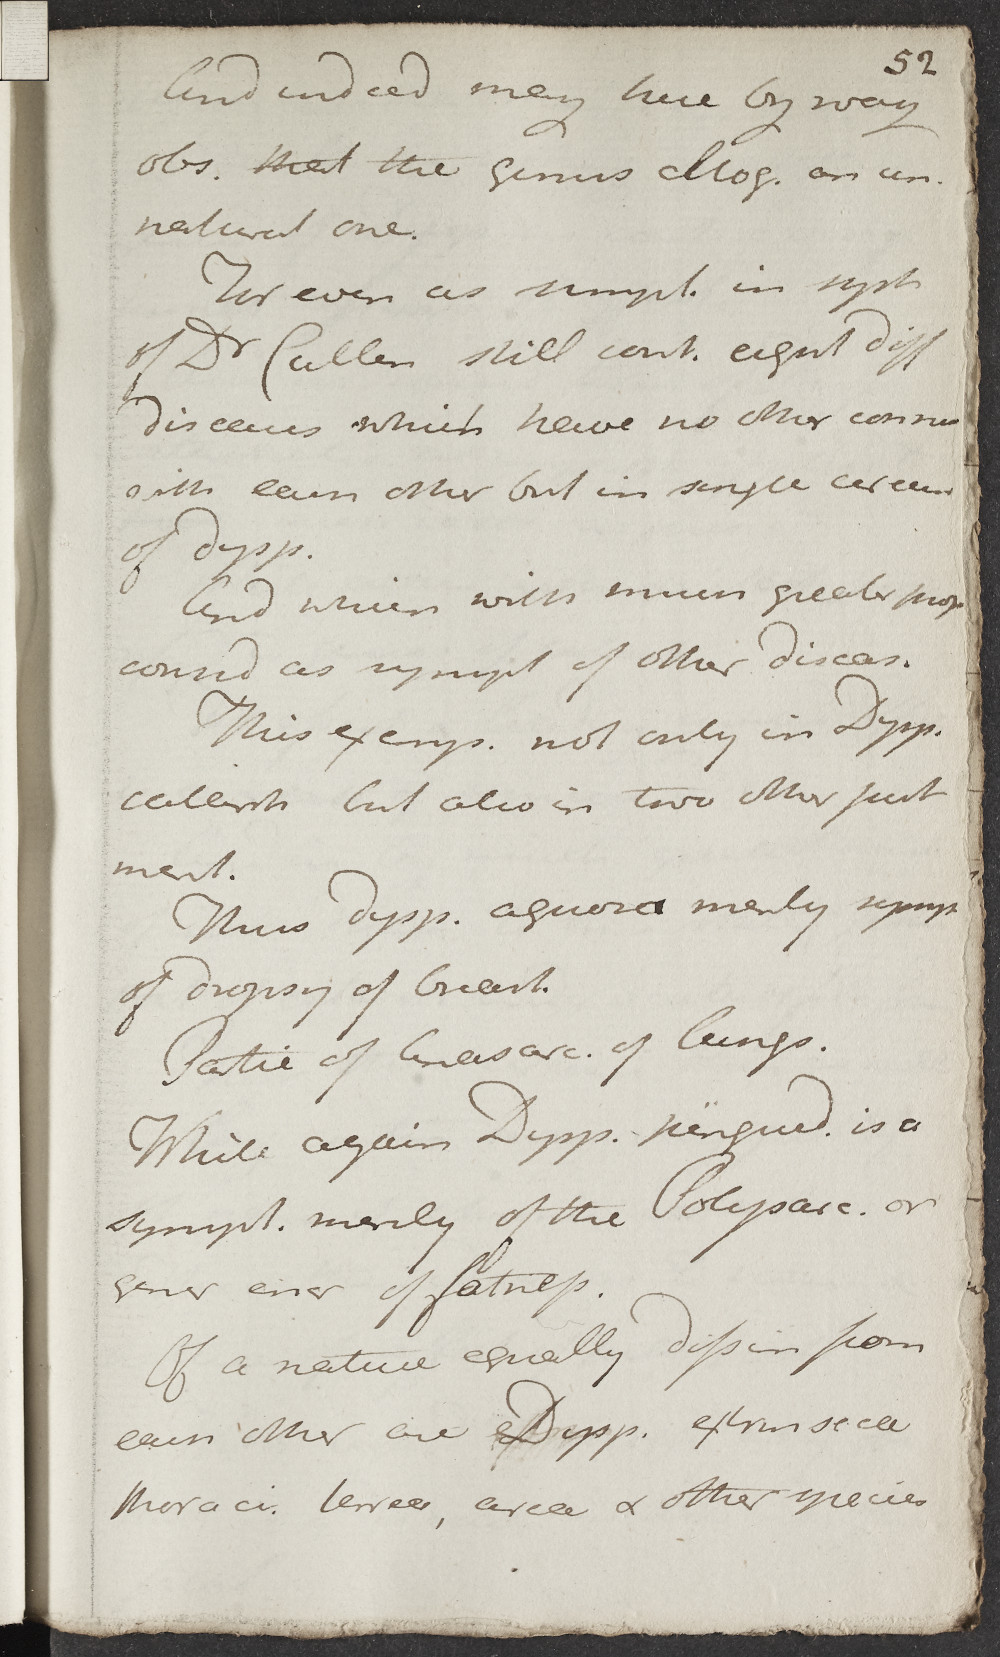 52
And indeed may here by way
obs. that the genus altog. an un-
natural one.
For even as simpl. in syst
of Dr Cullen still cont. eight diff
diseases which have no other connex
with each other but in single circum
of dysp.
And which with much greater prop
consid as sympt of other diseas.
This exemp. not only in Dysp.
catarrh but also in two other just
ment.
Thus dysp. aquosa merely sympt
of dropsy of breast.
Partic of Anasarc. of lungs.
While again Dysp. pingued. is a
sympt. merely of the Polysarc. or
gener of fatness.
Of a nature equally dissim from
each other are Dysp. extrinseca
thoraci. terrea, & other species